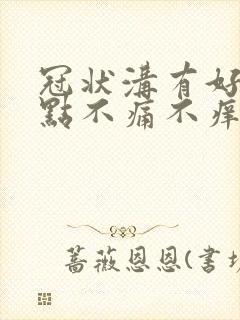 冠状溝有好
點不痛不痒
蔷薇恩恩(书坊